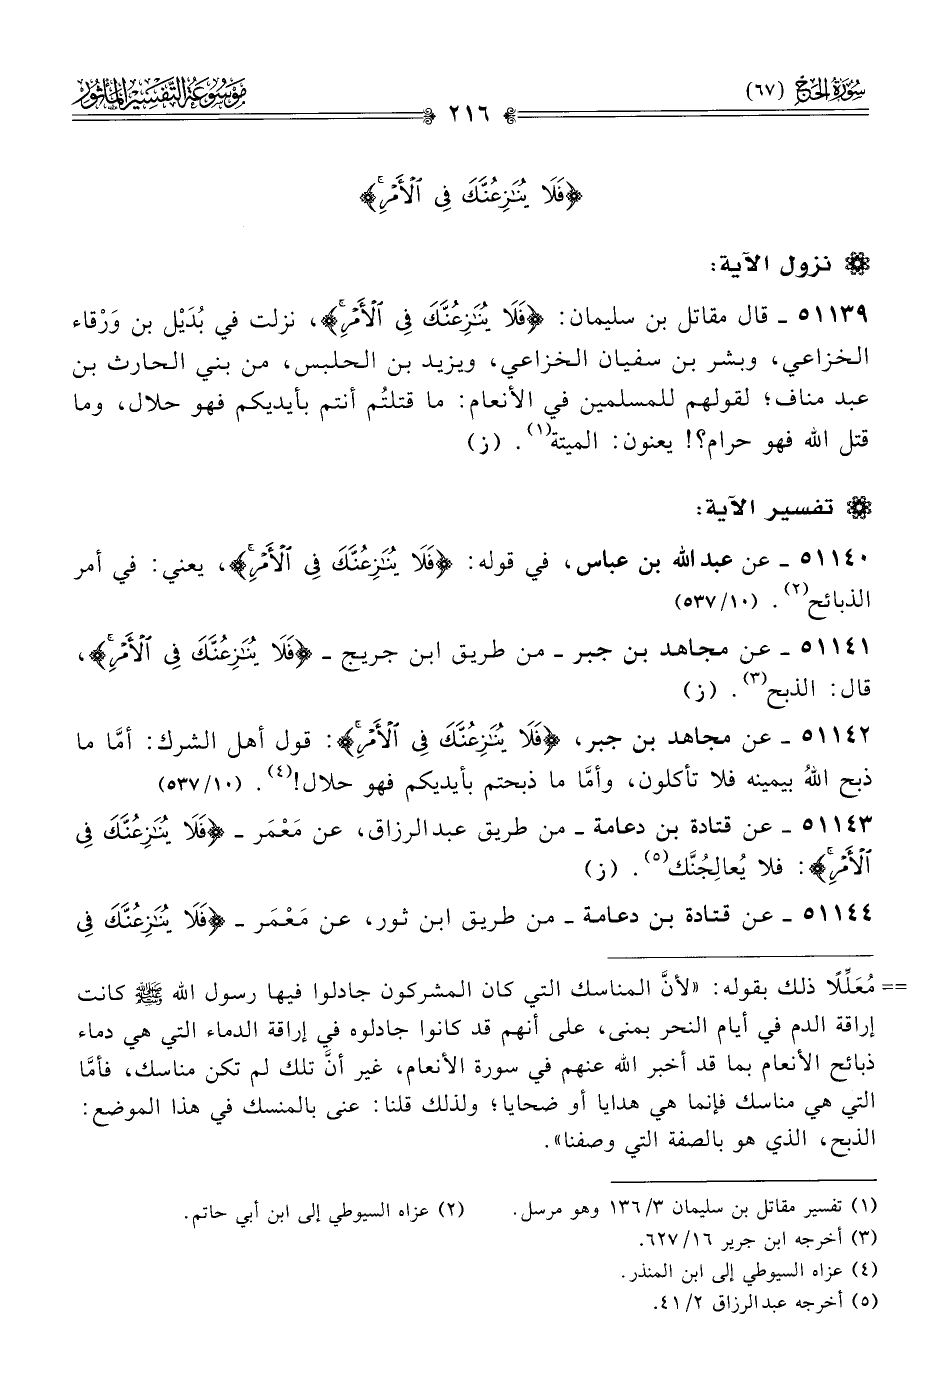 سُورَةُ الحَجّ (٦٧)
٢١٦
مَوْسُوعَةُ التَّفْسِيرِ المَأْثُورِ
﴿فَلَا يُنَٰزِعُنَّكَ فِى ٱلْأَمْرِۚ﴾
نزول الآية:
٥١١٣٩ ـ قال مقاتل بن سليمان: ﴿فَلَا يُنَٰزِعُنَّكَ فِى ٱلْأَمْرِۚ﴾، نزلت في بُدَيْل بن وَرْقاء
الخزاعي، وبشر بن سفيان الخزاعي، ويزيد بن الحلبس، من بني الحارث بن
عبد مناف؛ لقولهم للمسلمين في الأنعام: ما قتلتُم أنتم بأيديكم فهو حلال، وما
قتل الله فهو حرام؟! يعنون: الميتة(١). (ز)
تفسير الآية:
٥١١٤٠ ـ عن عبد الله بن عباس، في قوله: ﴿فَلَا يُنَٰزِعُنَّكَ فِى ٱلْأَمْرِۚ﴾، يعني: في أمر
الذبائح(٢). (١٠/٥٣٧)
٥١١٤١ ـ عن مجاهد بن جبر ـ من طريق ابن جريج ـ ﴿فَلَا يُنَٰزِعُنَّكَ فِى ٱلْأَمْرِۚ﴾،
قال: الذبح(٣). (ز)
٥١١٤٢ ـ عن مجاهد بن جبر، ﴿فَلَا يُنَٰزِعُنَّكَ فِى ٱلْأَمْرِۚ﴾: قول أهل الشرك: أمَّا ما
ذبح اللهُ بيمينه فلا تأكلون، وأمَّا ما ذبحتم بأيديكم فهو حلال!(٤). (١٠/٥٣٧)
٥١١٤٣ ـ عن قتادة بن دعامة ـ من طريق عبد الرزاق، عن مَعْمَر ـ ﴿فَلَا يُنَٰزِعُنَّكَ فِى
ٱلْأَمْرِۚ﴾: فلا يُعالِجُنَّك(٥). (ز)
٥١١٤٤ ـ عن قتادة بن دعامة ـ من طريق ابن ثور، عن مَعْمَر ـ ﴿فَلَا يُنَٰزِعُنَّكَ فِى
== مُعَلِّلًا ذلك بقوله: «لأنَّ المناسك التي كان المشركون جادلوا فيها رسول الله ﷺ كانت
إراقة الدم في أيام النحر بمنى، على أنهم قد كانوا جادلوه في إراقة الدماء التي هي دماء
ذبائح الأنعام بما قد أخبر الله عنهم في سورة الأنعام، غير أنَّ تلك لم تكن مناسك، فأمَّا
التي هي مناسك فإنما هي هدايا أو ضحايا؛ ولذلك قلنا: عنى بالمنسك في هذا الموضع:
الذبح، الذي هو بالصفة التي وصفنا».
(١) تفسير مقاتل بن سليمان ٣/١٣٦ وهو مرسل. (٢) عزاه السيوطي إلى ابن أبي حاتم.
(٣) أخرجه ابن جرير ١٦/٦٢٧.
(٤) عزاه السيوطي إلى ابن المنذر.
(٥) أخرجه عبد الرزاق ٢/٤١.